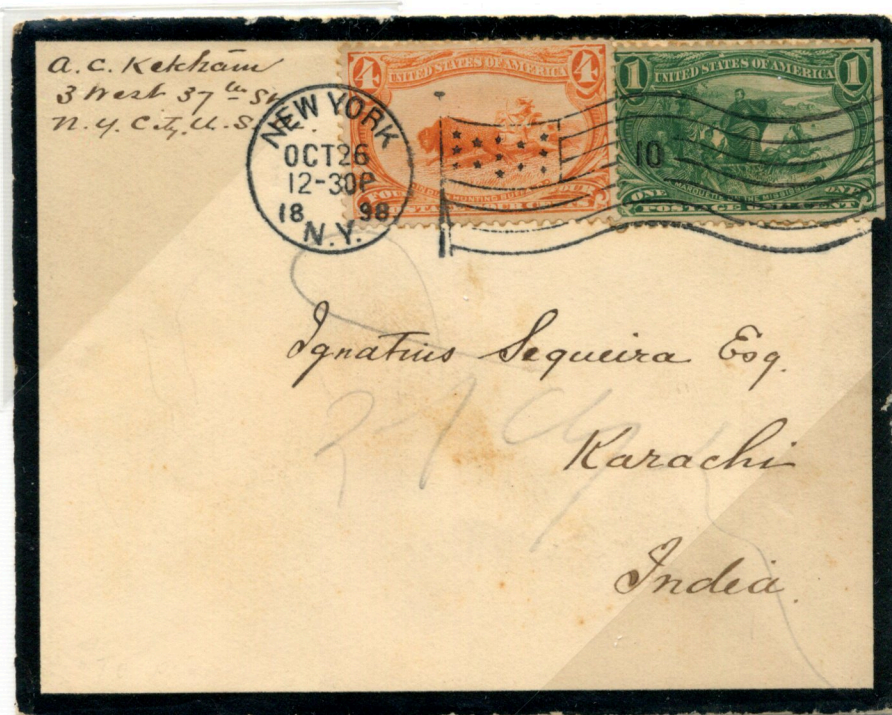 A. C. Ketcham
3 West 37th St
N. Y. City, U. S.
NEW YORK
OCT 26
12-30P
18 98
N.Y.
4 4
UNITED STATES OF AMERICA
1 1
UNITED STATES OF AMERICA
10
ONE ONE
POSTAGE
Ignatius Sequeira Esq.
Karachi
India.